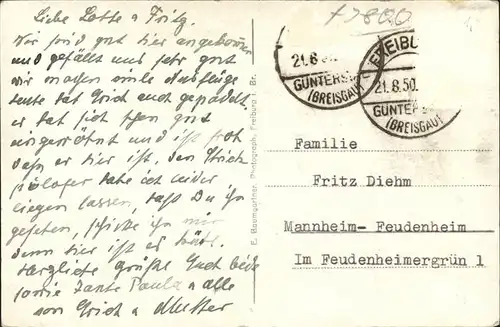 Liebe Lotte u Fritz.
Wir sind gut hier angekommen
und gefällt uns sehr gut
wir machen viele Ausflüge
heute hat Erich auch
er hat sich schon gut
eingewöhnt und ist froh
daß er hier ist. den Strick
habe ich wider
liegen lassen, hast Du ihn
gesehen, schicke ihn mir
denn hier ist es
Herzliche Grüße Euch beide
sowie Tante Paula u alle
von Erich u Mutter
E. Baumgartner, Photograph, Freiburg i. Br.
+7800
21.8.50
GÜNTERS
(BREISGAU)
FREIBU
21.8.50.
GÜNTERS
(BREISGAU)
Familie
Fritz Diehm
Mannheim- Feudenheim
Im Feudenheimergrün 1